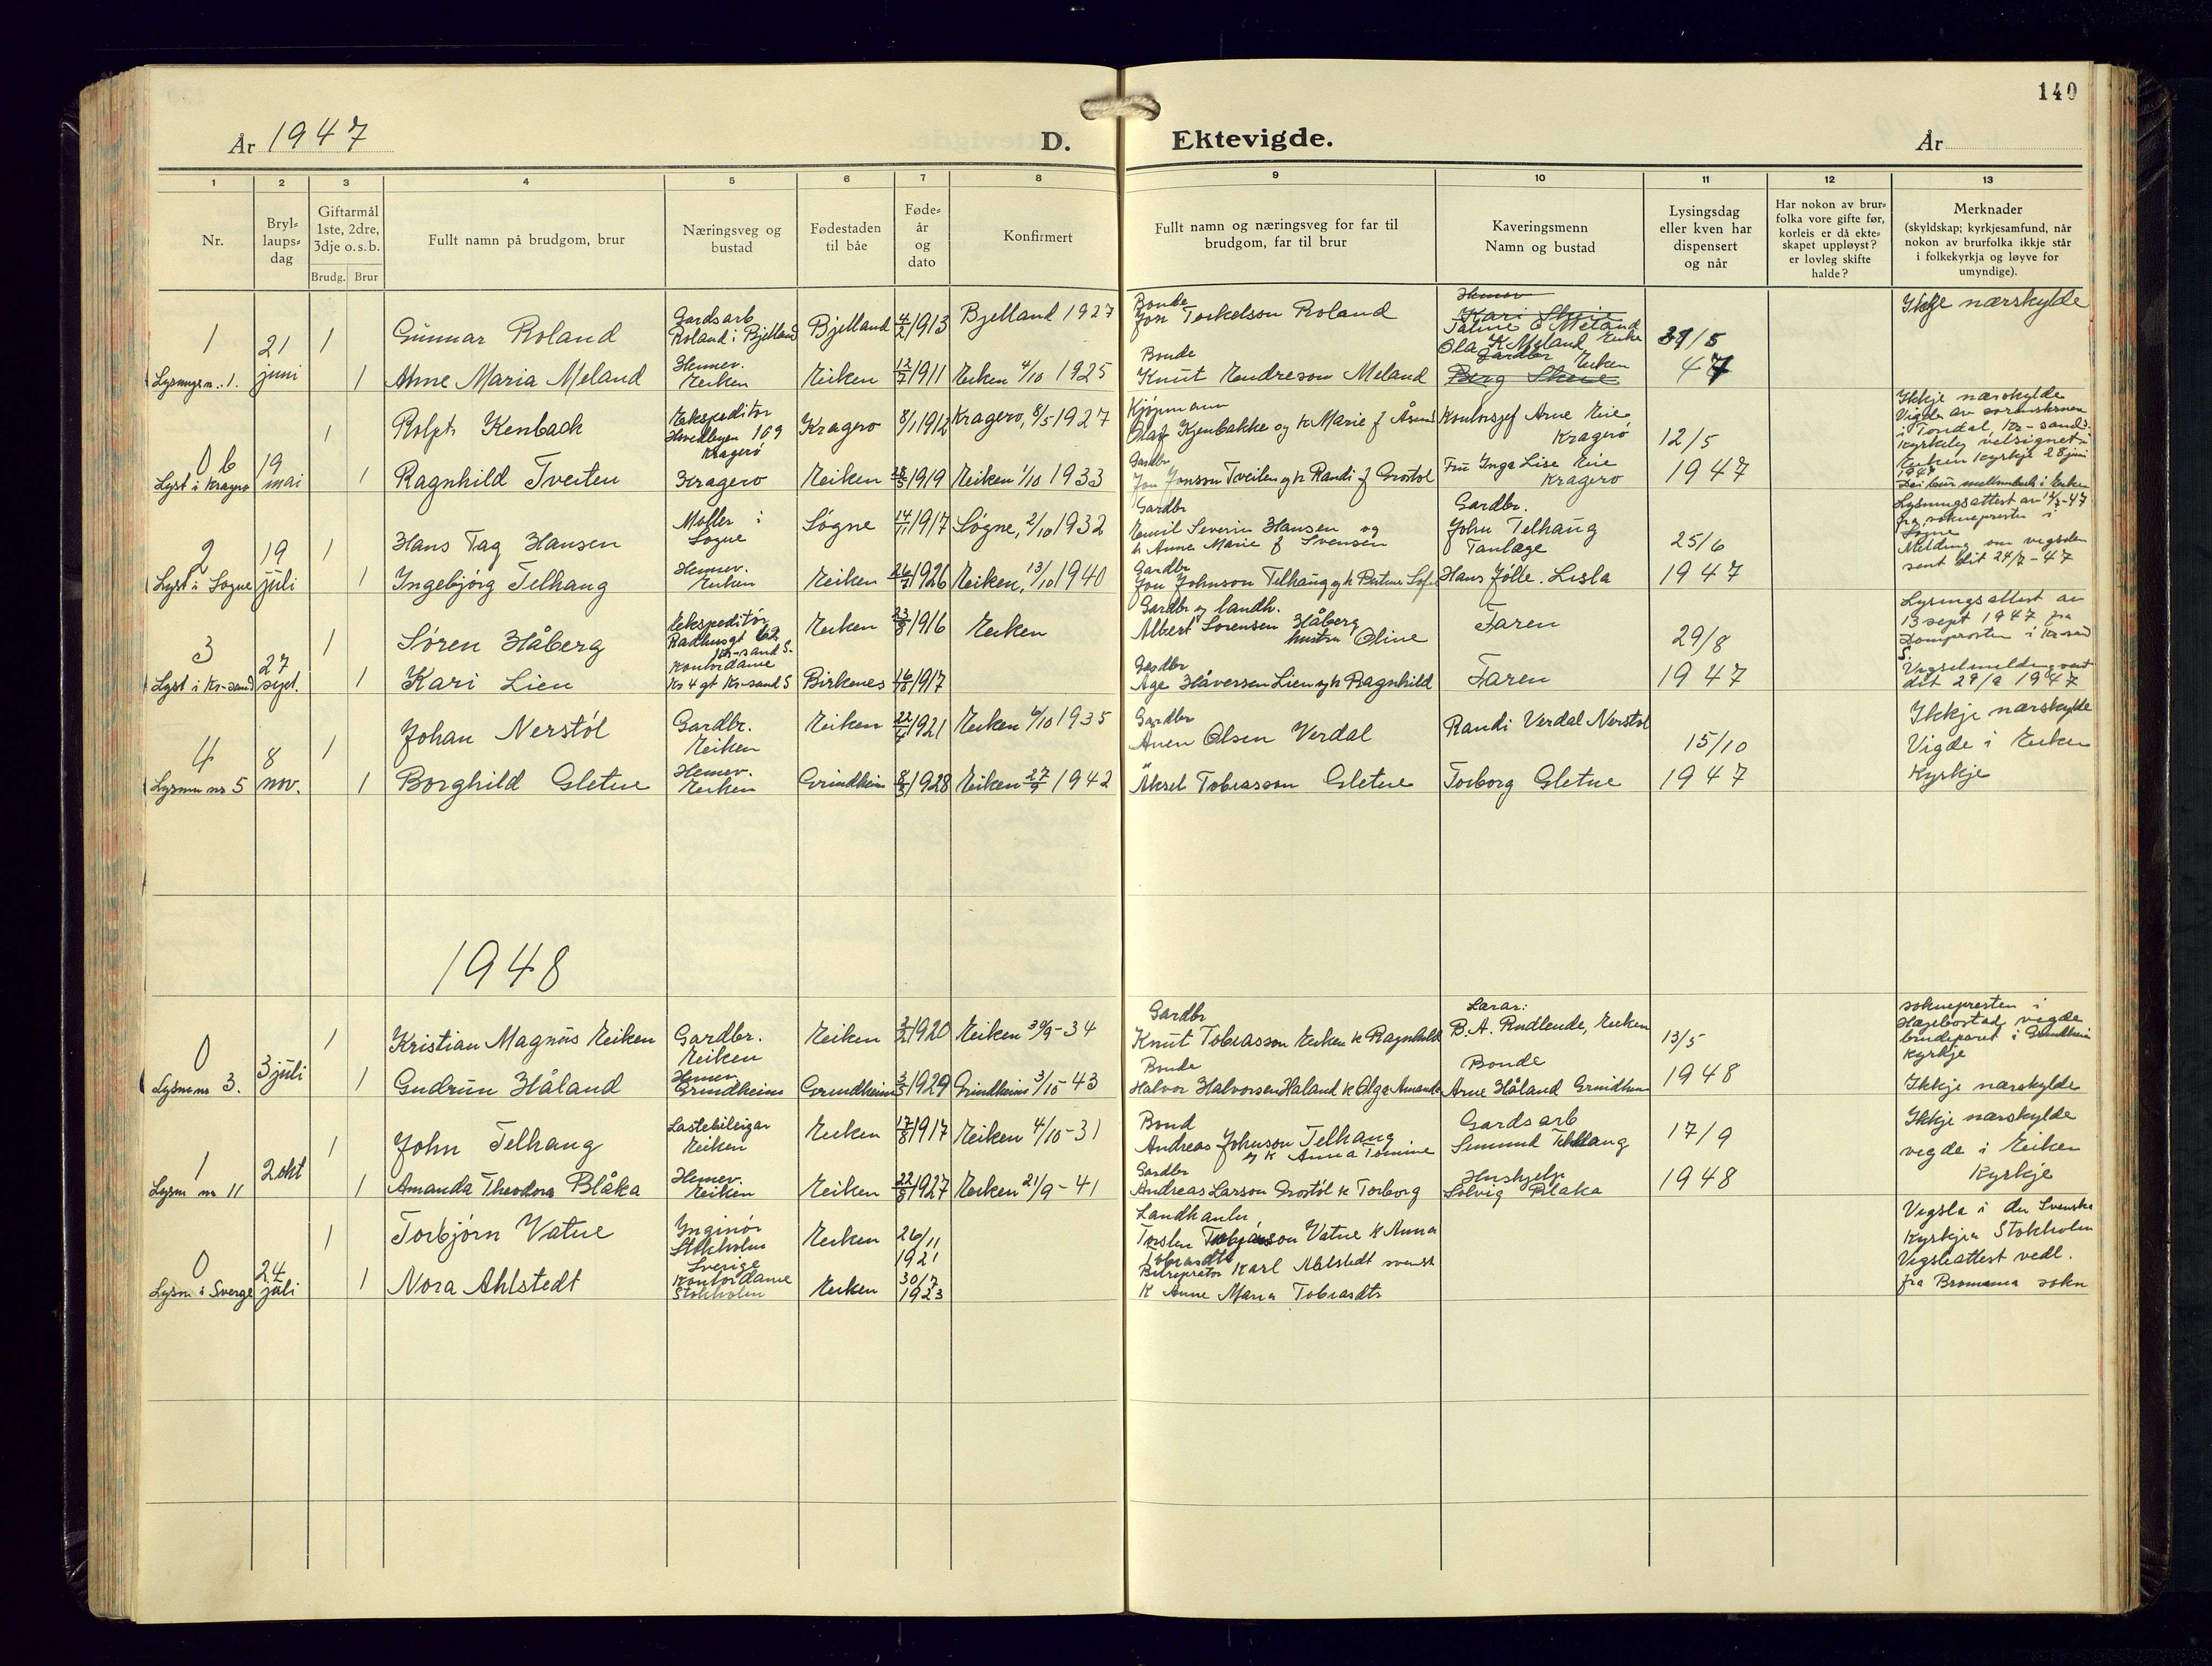 140
År 1947
D. Ektevigde.
År
1 2 3 4 5 6 7 8 9 10 11 12 13
Nr.
Bryl-
laups-
dag
Giftarmål
1ste, 2dre,
3dje o.s.b.
Brudg. Brur
Fullt namn på brudgom, brur
Næringsveg og
bustad
Fødestaden
til båe
Føde-
år
og
dato
Konfirmert
Fullt namn og næringsveg for far til
brudgom, far til brur
Kaveringsmenn
Namn og bustad
Lysingsdag
eller kven har
dispensert
og når
Har nokon av brur-
folka vore gifte før,
korleis er då ekte-
skapet uppløyst?
er lovleg skifte
halde?
Merknader
(skyldskap; kyrkjesamfund, når
nokon av brurfolka ikkje står
i folkekyrkja og løyve for
umyndige).
1
21
juni
1
Gunnar Roland
Gardsarb
Roland i Bjelland
Bjelland
4/2 1913
Bjelland 1927
Bonde
Jon Torkelson Roland
Ola K Meland
Ikkje nærskylde
1
Anne Maria Meland
Heimev.
Eiken
Eiken
12/7 1911
Eiken 4/10 1925
Bonde
Knut Eendreson Meland
/5
47
0 6
Lyst i Kragerø
19
mai
1
Kenbach
Ekspeditør
109
Kragerø
Kragerø
8/1 1912
Kragerø, 8/5 1927
Kjøpmann
Olaf Kjenbakke og k Marie f
Kontorsjef Arne Eie
Kragerø
12/5
1947
Ikkje nærskylde
Vigde av
Kr-sand S.
28 juni
1947
1
Ragnhild Tveiten
Kragerø
Eiken
1919
Eiken 1/10 1933
Gardbr
Jon Jonsson Tveiten og k Randi f Grostøl
Fru Inga Lise Eie
Kragerø
2
Lyst i Søgne
19
juli
1
Hans Tag Hansen
Møller i
Søgne
Søgne
1917
Søgne, 2/10 1932
Gardbr
Emil Severin Hansen og
k Anne Marie f Svensen
Gardbr.
John Telhaug
25/6
1947
Lysningsattest av
fra soknepresten i
Søgne
Melding om vigslen
sent dit 24/7-47
1
Ingebjørg Telhaug
Heimev.
Eiken
Eiken
1926
Eiken, 13/10 1940
Gardbr
Jon Johnson Telhaug og k
Hans Jølle. Lista
3
Lyst i Kr-sand
27
sept.
1
Søren Håberg
Ekspeditør
Kr-sand S.
Eiken
1916
Eiken
Gardbr og landh.
Albert Sorensen Håberg
hustru Oline
Faren
29/8
1947
Lysingsattest av
13 sept 1947 fra
Domprosten i Kr-sand
S.
Vigselmelding sent
dit 29/9 1947
1
Kari Lien
Kontordame
Kr 4 gt Kr-sand S
Birkenes
1917
Gardbr
Åge Håverssen Lien og k Ragnhild
Faren
4
8
nov.
1
Johan Nerstøl
Gardbr.
Eiken
Eiken
1921
Eiken 6/10 1935
Gardbr
Olsen Verdal
Randi Verdal Nerstøl
15/10
1947
Ikkje nærskylde
Vigde i Eiken
Kyrkje
1
Borghild Gletne
Heimev.
Eiken
Grindheim
1928
Eiken 27/9 1942
Aksel Tobiasson Gletne
Torborg Gletne
1948
0
3 juli
1
Kristian Magnus Eiken
Gardbr.
Eiken
Eiken
1920
Eiken 30/9-34
Gardbr
Knut Tobiasson Eiken k Ragnhild
Lærar:
B. A. Rudlende, Eiken
13/5
1948
soknepresten i
Hægebostad vigde
brudeparet i Grindheim
Kyrkje
Ikkje nærskylde
1
Gudrun Håland
Heimev.
Grindheim
Grindheim
1929
Grindheim 3/10-43
Bonde
Halvor Halvorsen Haland k Olga Amanda
Bonde
Arne Håland Grindheim
1
Lysn nr 11
2 okt
1
John Telhaug
Lastebileigar
Eiken
Eiken
17/8 1917
Eiken 4/10-31
Bond
Andreas Johnson Telhaug
og k Anna Tomine
Gardsarb
Semund Telhaug
17/9
1948
Ikkje nærskylde
vigde i Eiken
Kyrkje
1
Amanda Theodora Blåka
Heimev.
Eiken
Eiken
1927
Eiken 21/9-41
Gardbr
Andreas Larson Grostøl k Torborg
Hushjelp
Solvig Blaka
0
Lysn i Sverge
24
juli
1
Torbjørn Vatne
Inginør
Stokholm
Sverige
Eiken
26/11
1921
Landhandlr
Vatne k Anna
Tobiasdtr
Vigsla i den Svenska
Kyrkja Stokholm
Vigsleattest vedl.
fra Bromma sokn
1
Nora Ahlstedt
Kontordame
Stokholm
Eiken
1923
Karl Ahlstedt svensk
k Anne Maria Tobiasdtr